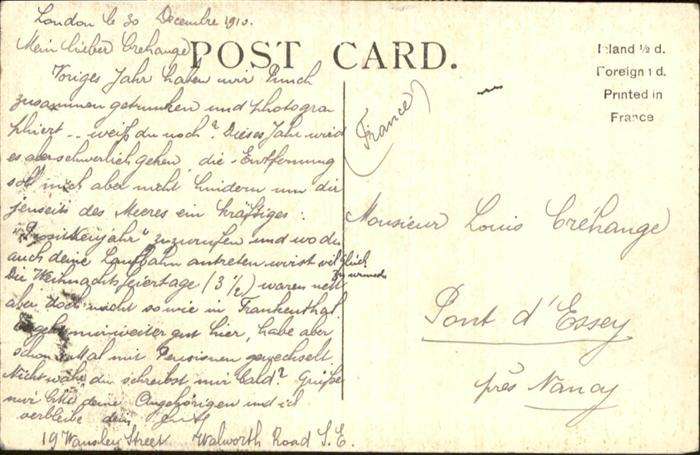 London le 30 Decembre 1910.
Mein lieber Créhange
POST CARD.
Inland ½ d.
Foreign 1 d.
Printed in
France
Voriges Jahr haben wir Punsch
zusammen getrunken und photogra
phiert -- weißt du noch? Dieses Jahr wird
es aber schwerlich gehen die Entfernung
soll mich aber nicht hindern um dir
jenseits des Meeres ein kräftiges:
"Prosit Neujahr" zuzurufen und wo du
auch deine Laufbahn antreten wirst viel Glück
zu
Die Weihnachtsfeiertage (3½) waren nett
aber doch nicht so wie in Frankenthal.
mir weiter gut hier, habe aber
schon mal mit Pensionen gewechselt
Nicht wahr du schreibst mir bald? Grüße
mir deine Angehörigen und ich
verbleibe dein
19 Wansley Street Walworth Road S.E.
(France)
Monsieur Louis Créhange
Pont d'Essey
près Nancy